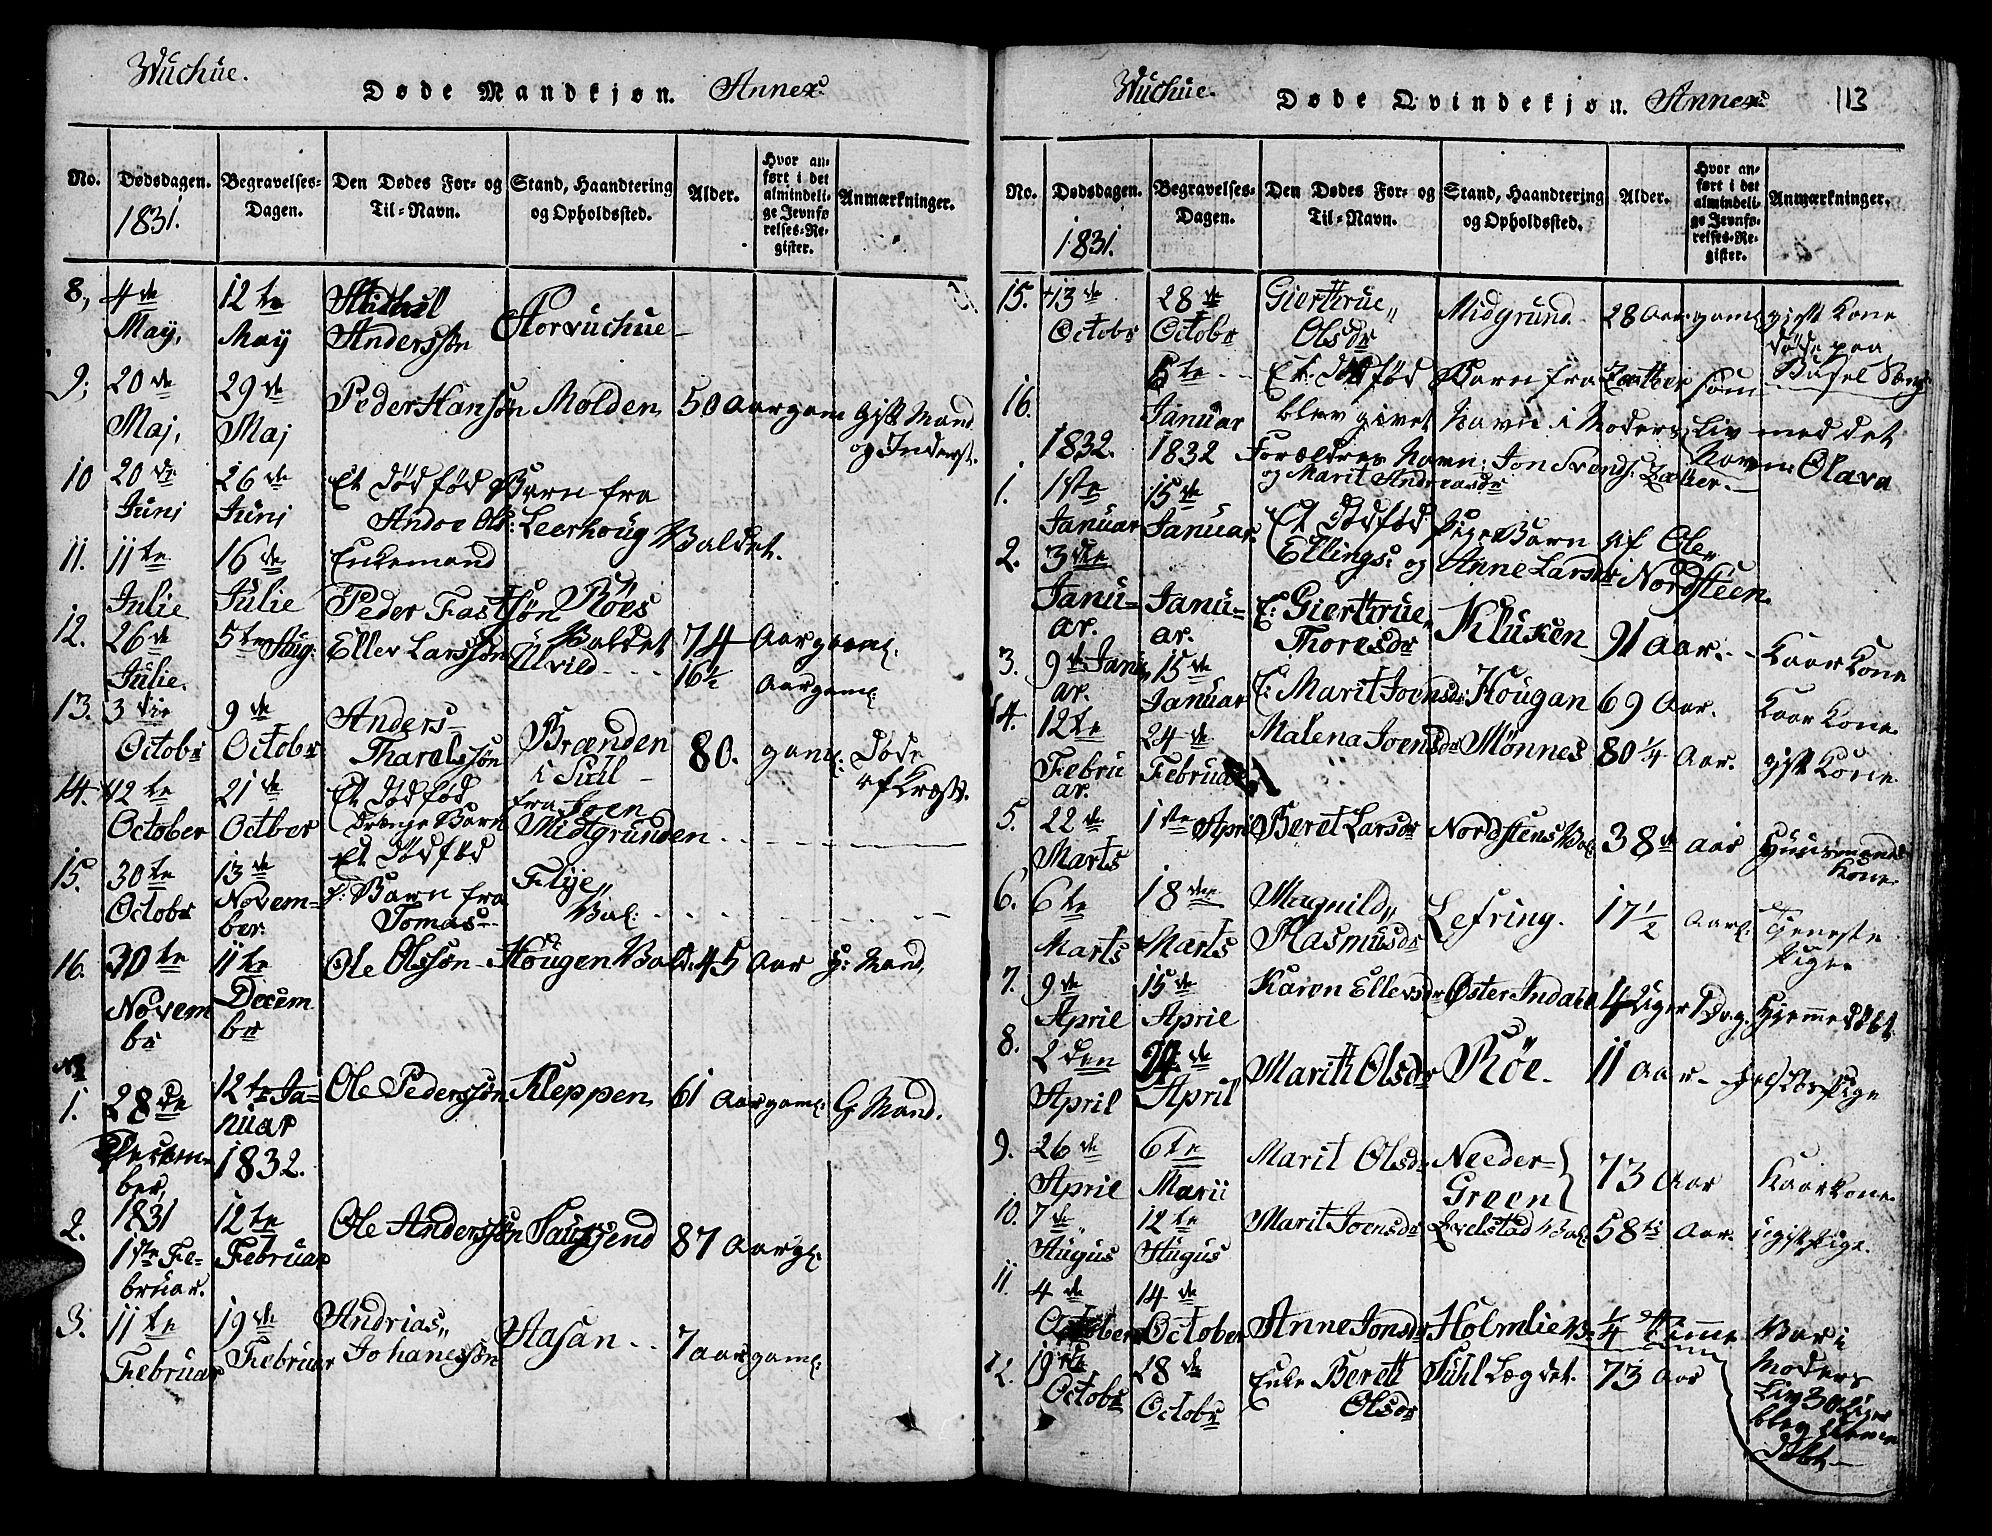 Wuchue.
Døde Mandkjøn. Annex
No. Dødsdagen. Begravelses-Dagen. Den Dødes For- og Til-Navn. Stand, Haandtering og Opholdssted. Alder. Hvor anført i det almindelige Jevnførelses-Register. Anmærkninger.
1831.
8, 4de May, 12te May Anderssøn Storvuchue
9, 20de Maj, 29de Maj Peder Hansøn Molden 50 Aar gam gift Mand og Inderst.
10 20de Junj 26de Junj Et dødfød Barn fra
Leerhoug Valdet.
11. 11te Julie 16de Julie Enkemand
Peder Fastsøn Röes Valdet 74 Aar gaml.
12. 26de Julie. 5te Aug: Ellev Larssøn Ulvild 16½ Aar gaml:
13. 3die Octobr 9de Octobr Anders Tharalssøn Brænden i Suhl 80. gaml: Døde
14. 12te October 21de Octber Et dødfød Drenge Barn fra Joen Midtgrunden
15. 30te Octobr 13de November. Et dødfød
Barn fra Tomas Flyje Val:
16. 30te Novembr 11te Decembr Ole Olssøn Hougen Vald: 45 Aar g: Mand.
1. 28de December, 1831 12te Januar 1832. Ole Pederssøn Kleppen 61 Aar gaml: G. Mand.
2. 1ste Februar. 12te Februar Ole Anderssøn 87 Aar gl:
3. 11te Februar 19de Februar Andrias Johanessøn Aasan 7 aar gaml:
Wuchue.
Døde Qvindekjøn. Annex 113
No. Dødsdagen. Begravelses-Dagen. Den Dødes For- og Til-Navn. Stand, Haandtering og Opholdssted. Alder. Hvor anført i det almindelige Jevnførelses-Register. Anmærkninger.
1831.
15. 13de Octobr 28de Octobr Gierthrue Olsdr Midgrund 28 Aar gaml gift Kone døde paa Barsel Seng
16. 6te Januar 1832 Et dødfød Barn fra som
blev givet Navn i Moders Liv med det
Forældres Navn: Jon Svends: Navn Olava
og Marit Andreasdr
1832.
1. 1ste Januar 15de Januar Et dødfød Pige Barn af Ole
Ellings: og Anne Larsdr Nordsteen
2. 3die Januar. Januar. E: Gierthrue Thoresdr Kluken 91 Aar. Kaar Kone
3. 9de Januar. 15de Januar E: Marit Joensdr: Hougan 69 Aar. Kaar Kone
4. 12te Februar. 24de Februar Malena Joensdr Mönnes 80¼ Aar. gift Kone
5. 22de Marts 1ste April Beret Larsdr Nordstens Val: 38 aar Huusmands Kone
6. 6te Marts 18de Marts Magnild Rasmusdr Lefring. 17½ Aar Tjeneste Pige
7. 9de April 15de April Karen Ellevsdr Øster Indalen 4 Uger Hjemme døbt
8. 2den April April Marith Olsdr Röe. 11 Aar
9. 26de April 6te Marit Olsdr Needer-Green 73 Aar Kaarkone
10. 7de Augus 12te Augus Marit Joensdr 58 Aar. ugift Pige.
11 4de October 14de October Anne Jonsdr Holmlie ¼ Time Var i Moders Liv
12. 19de Octobr 28de Octobr Enke Berett Olsdr Suhl Lægdet. 73 Aar